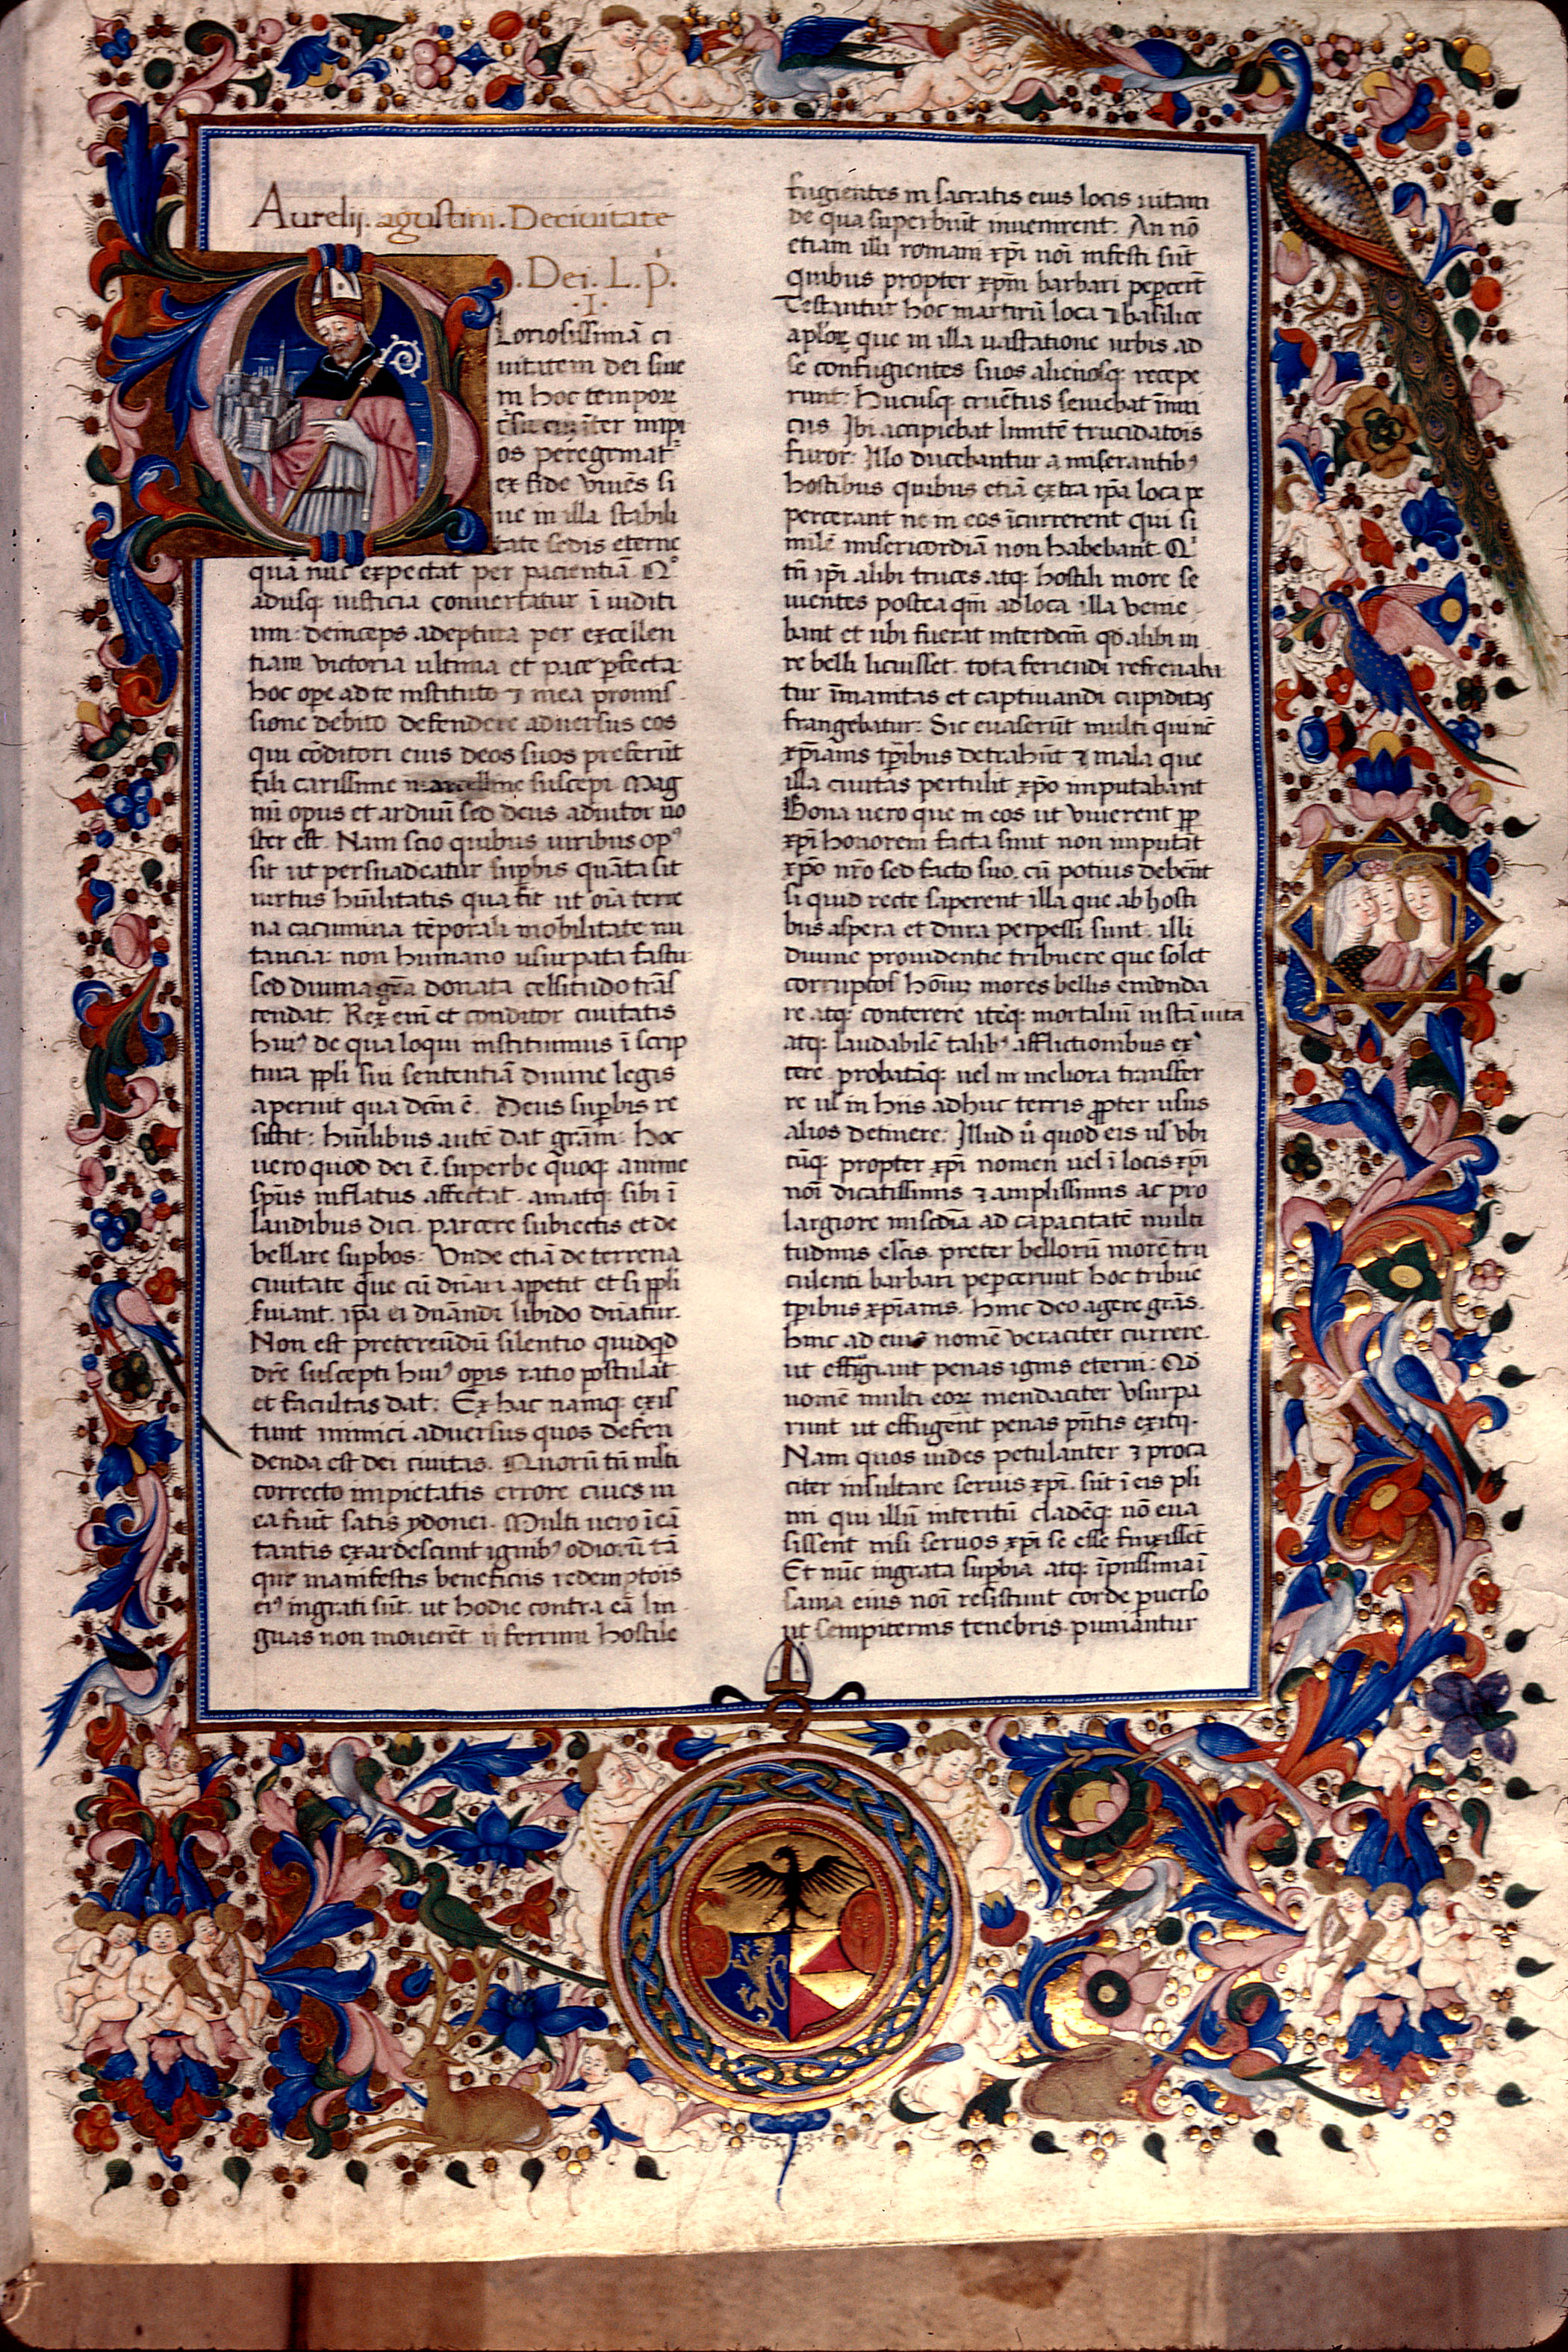 Aurelij. agustini. De ciuitate
. Dei. L. p̊.
.I.
Loriosissimā ci
uitatem dei siue
in hoc temporꝝ
cursu cū īter impi
os peregrinatᷣ
ex fide viuēs si
ue in illa stabili
tate sedis eterne
quā nūc expectat per pacientiā Qº
adusqꝫ iusticia conuertatur ī iuditi
um: deinceps adeptura per excellen
tiam victoria ultima et pace ꝑfecta:
hoc opere ad te instituto ⁊ mea promis
sione debito defendere aduersus eos
qui cōditori eius deos suos preferūt
fili carissime marcelline suscepi Mag
nū opus et arduū sed deus adiutor no
ster est. Nam scio quibus uiribus opꝰ
sit ut persuadeatur suꝑbis quāta sit
uirtus hūilitatis qua fit ut oīa terre
na cacumina tēporali mobilitate nu
tancia: non humano usurpata fastu
sed diuina gr̄a donata celsitudo trās
cendat. Rex em̄ et conditor ciuitatis
huiꝰ de qua loqui instituimus ī scrip
tura ppl̄i sui sententiā diuine legis
aperuit qua dcm̄ ē. Deus suꝑbis re
sistit: hūilibus autē dat grām: hoc
uero quod dei ē. superbe quoqꝫ anime
spūs inflatus affectat. amatqꝫ sibi ī
laudibus dici. parcere subiectis et de
bellare suꝑbos: Vnde etiā de terrena
ciuitate que cū dn̄ari appetit et si ppl̄i
ẜuiant. ip̄a ei dn̄andi libido dn̄atur.
Non est pretereūdū silentio quidqd
dr̄e suscepti huiꝰ oꝑis ratio postulat
et facultas dat: Ex hac namqꝫ exis
tunt inimici aduersus quos defen
denda est dei ciuitas. Quorū tn̄ mlti
correcto impietatis errore ciues in
ea fiūt satis ydonei. Multi uero ī eā
tantis exardescunt ignibꝰ odiorū tā
que manifestis beneficiis redemptois
eiꝰ ingrati sūt. ut hodie contra eā lin
guas non mouerēt n̄ ferrum hostile
fugientes in sacratis eius locis uitam
de qua superbiūt inuenirent. An nō
etiam illi romani xp̄i noi infesti sūt
quibus propter xp̄m barbari peꝑcerūt
Testantur hoc martirū loca ⁊ basilice
aplorꝝ que in illa uastatione urbis ad
se confugientes suos alienosqꝫ recepe
runt: Hucusqꝫ cruētus seuiebat inimi
cus Ibi accipiebat limitē trucidatois
furor: Illo ducebantur a miserantibꝰ
hostibus quibus etiā extra ip̄a loca pe
percerant ne in eos īcurrerent qui si
milē misericordiā non habebant. Qⁱ
tn̄ ip̄i alibi truces atqꝫ hostili more se
uientes postea qm̄ ad loca illa venie
bant et ubi fuerat interdcm̄ qd̄ alibi iu
re belli licuisset. tota feriendi refrenaba
tur īmanitas et captiuandi cupiditas
frangebatur: Sic euaserūt multi qui nē
xp̄ianis tp̄ribus detrahūt ⁊ mala que
illa ciuitas pertulit xp̄o imputabant
Bona uero que in eos ut viuerent ꝓp
xp̄i honorem facta sunt non imputāt
xp̄o nr̄o sed facto suo. cū potius debēnt
si quid recte saperent illa que ab hosti
bus aspera et dura perpessi sunt. illi
diuine prouidentie tribuere que solet
corruptos hom̄ mores bellis emēnda
re atqꝫ conterere itēqꝫ mortaliū iustā uitā
atqꝫ laudabilē talibꝰ afflictionibus ex
cere probatāqꝫ uel in meliora transfer
re ul̄ in hiis adhuc terris ꝓpter usus
alios detinere: Illud ů quod eis ul̄ vbi
cūqꝫ propter xp̄i nomen uel ī locis xp̄i
noi dicatissimis ⁊ amplissimis ac pro
largiore mis̄cdīa ad capacitatē multi
tudinis el̄cis preter bellorū morē tru
culenti barbari peꝑcerunt hoc tribuē
tp̄ribus xp̄ianis. hinc deo agere grās.
hinc ad eius nomē veraciter currere.
ut effugiāt penas ignis eterni: Qd
nomē multi eorꝝ mendaciter vsurpa
runt ut effugerēt penas pn̄tis exitij.
Nam quos uides petulanter ⁊ proca
citer insultare seruis xp̄i. sūt ī eis pl̄i
mi qui illū interitū cladēqꝫ nō eua
sissent nisi seruos xp̄i se esse finxissēt
Et nūc ingrata suꝑbia atqꝫ īpiissima ī
sania eius noi resistunt corde ꝑuerso
ut sempiternis tenebris puniantur